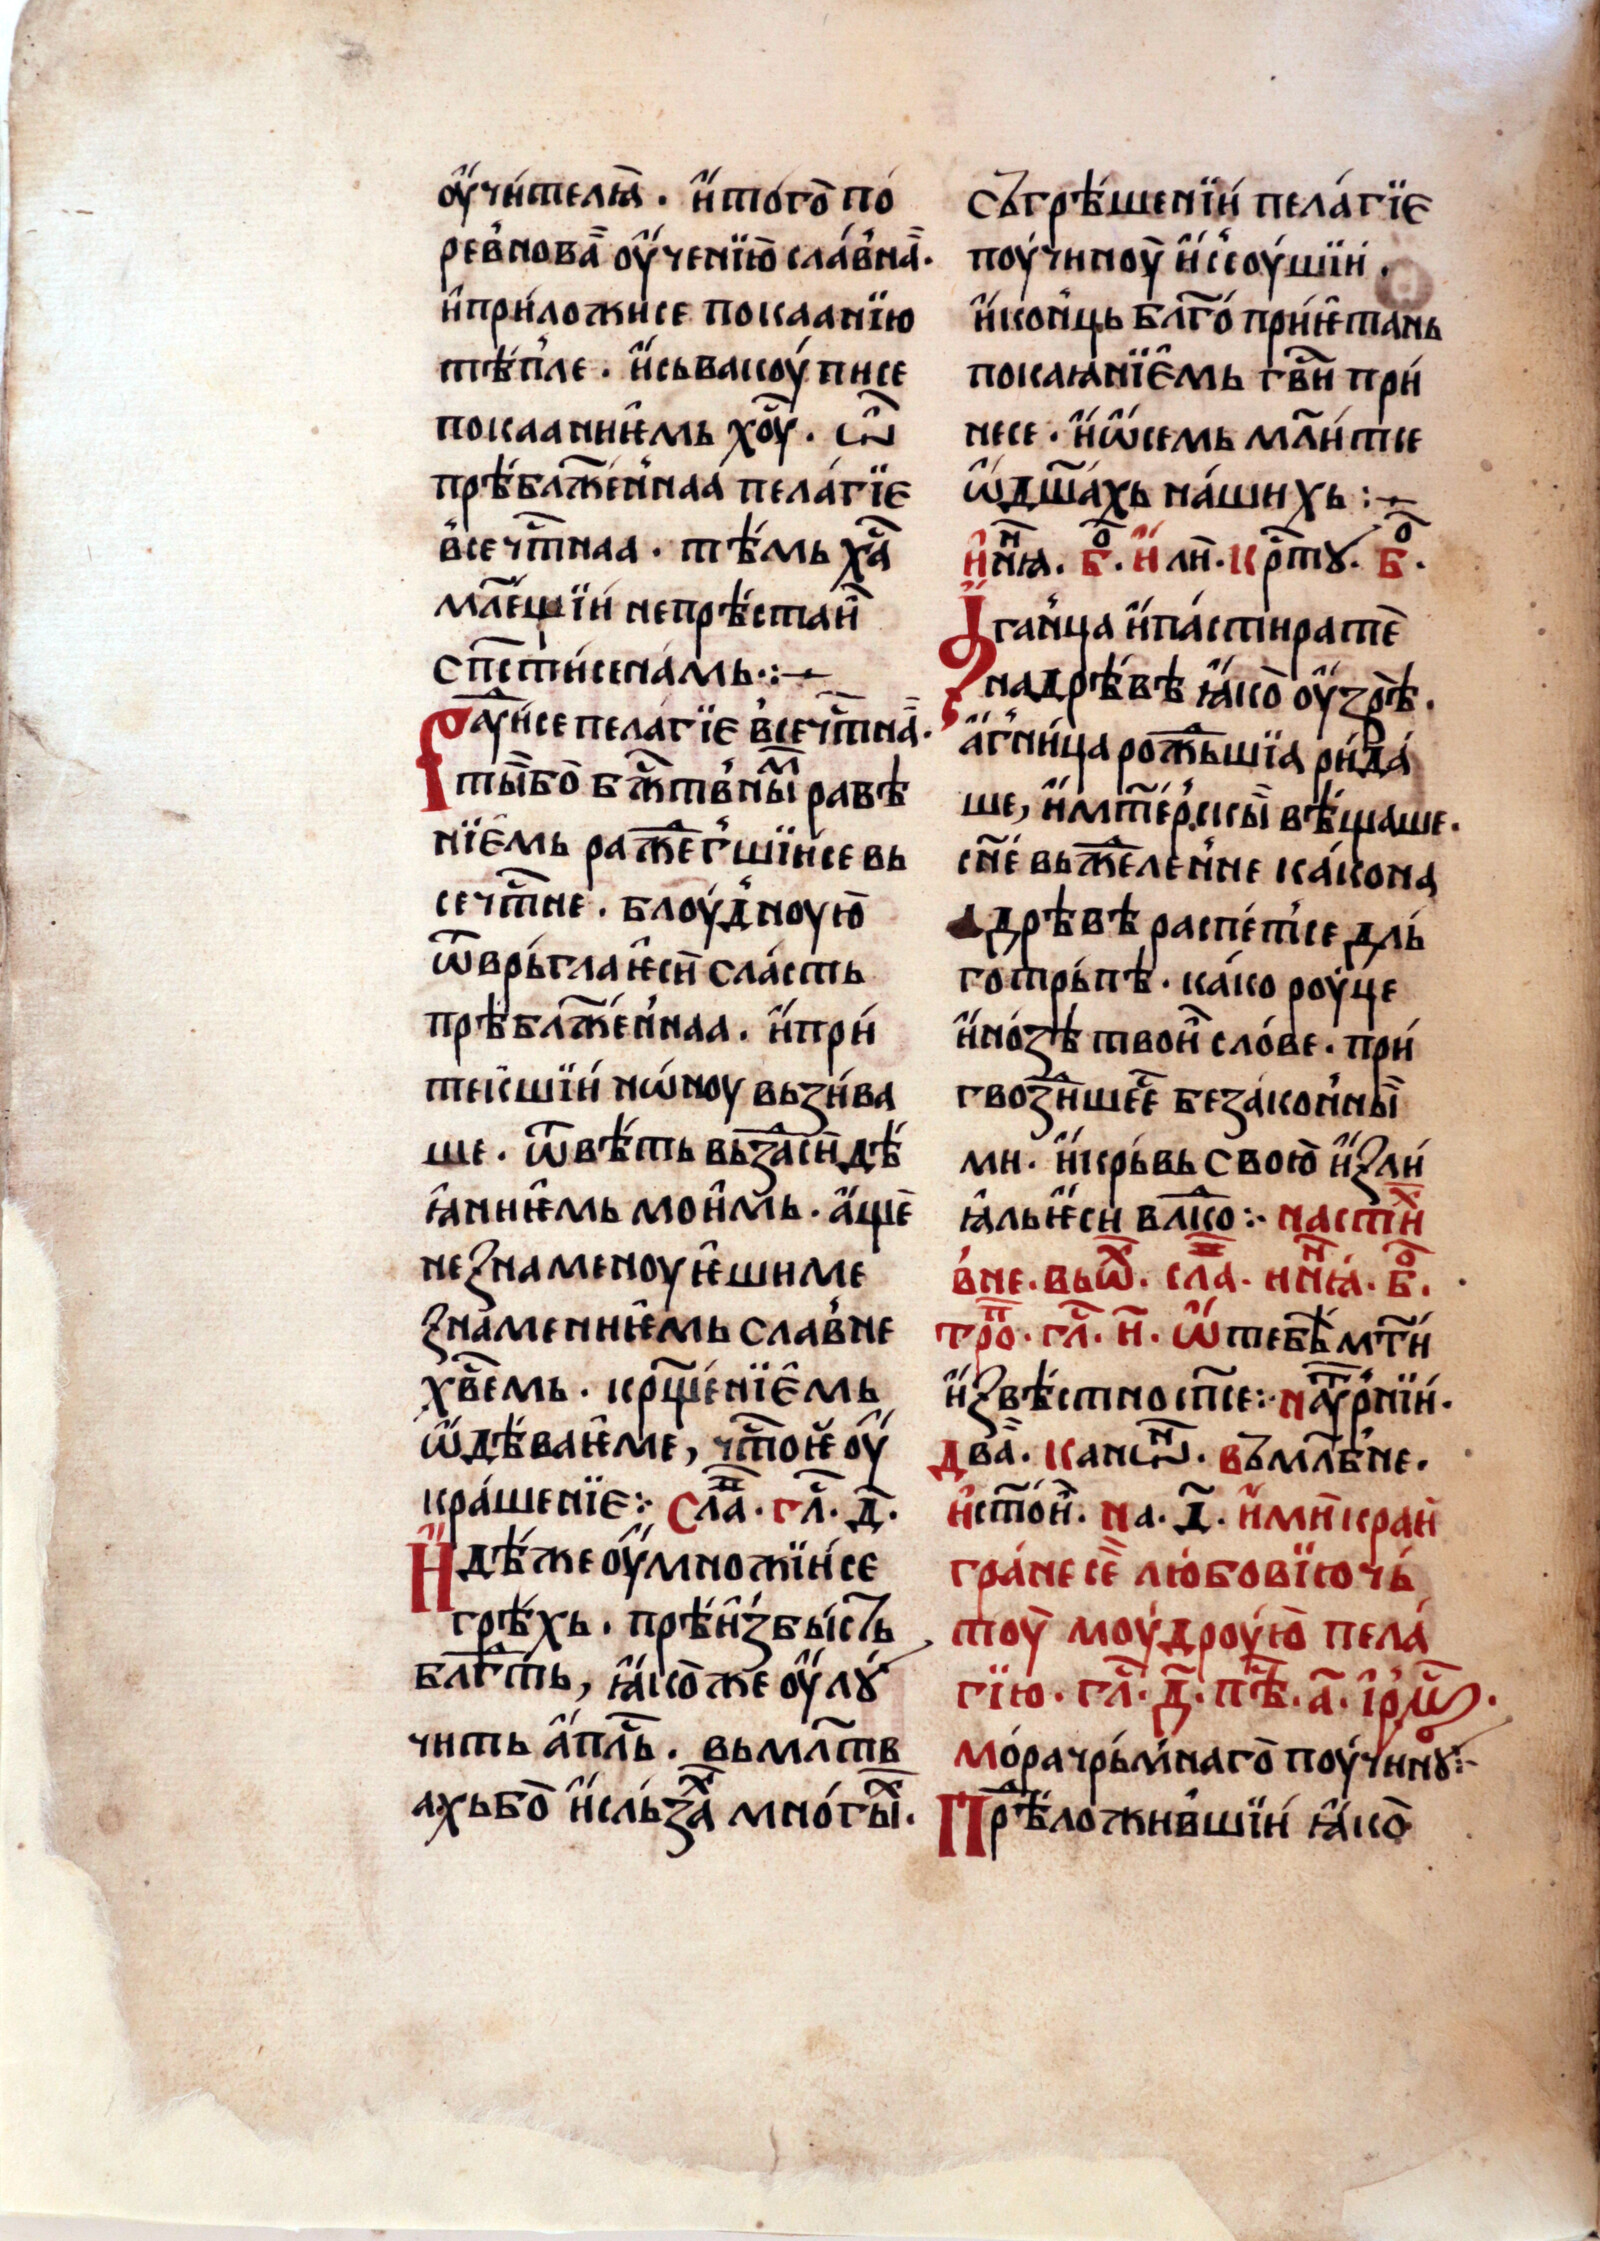 ᲂу҆чи́телꙗ̀. и҆ того̀ по
рев̾нова̏ ᲂу҆ченїю̀ сла́в̾на̏.
и҆ прило́жисе покаанїю
тѣ́пле. и҆ сьвакоу́писе
покаани҆ѥмь хо҃у. ѡ҆̀
прѣбл҃же́н̾наа пела́гїе
в̾сечт҃наа. тѣ́мь ха҃
мл҃е́щїи непрѣ́стан̏
сп҃сти́сенамь:
Рау҃и́се пела́гїе в̾сечт҃на̏.
ты̏бо бж҃тв̾ны̏ⷨ равѣ
нїе҆мь ражег̾шїи́се вь
сечт҃не. блоу́д̾ноую̀
ѿврьгла ѥ҆сѝ сла́сть
прѣбл҃же́н̾наа. и҆ при́
текшїи нѡ́ноу вьзи́ва
ше. ѿвѣ́ть вьзаси̏ дѣ́
ꙗ҆ни҆ѥмь мои҆мь. а҆ще̏
незнаменоуѥ҆шиме
знамени҆ѥмь слав̾не
хв҃ѣмь. крщ҃е́нїе҆мь
ѡ҆дѣ́ваѥ҆ме, чт҃ою҆ ᲂу҆
кра́шенїе: Сла̏. гл҃. д҃.
И҆дѣ́же ᲂу҆мно́жїи́се
грѣ́хь. прѣи҆́збы́сть
блг҃ть, ꙗ҆ко̀же ᲂу҆лꙋ́
чить а҆пл҃ь. вьмл҃тв
ахьбо̀ и҆сльза̏ⷯ мно́гы̏ⷯ.
съгрѣ́шенїи́ пела́гїе
поу́чиноу̀ и҆сеоу́шїи́.
и҆ кон̾ць бл҃го́прїѥ҆тань
покаꙗнїе҆мь гв҃и при́
несе. и҆ ѡ҆семь мл҃и́тсе
ѡ҆ дш҃ахь на́шихь:
и҆ⷩнꙗ. бⷪ҇. и҆лѝ. крⷭ҇тꙋ. бⷪ҇.
Ꙗган̾ца и҆ па́стирате̏
на дрѣ́вѣ ꙗ҆ко̀ ᲂу҆зрѣ̏.
а҆́г̾ни́ца рожьшїа ри́да́
ше, и҆ мт҃е́р̾скы̏ вѣ́щаше.
сн҃е́ вьжеле́н̾не ка́кона
дрѣвѣ распе́т̾се дль́
готрьпѣ. ка́ко роу́це
и҆но́зѣ твои̏ сло́ве. при́
гвозди̏шете̏ беза́кон̾ны̏
ми. и҆крь́вь свою̀ и҆зли́
ꙗ҆ль ѥ҆си вл҃ко: настиⷯ
в̾не. вьѡ̏ⷯ. сла̏. ннꙗ̏. бⷪ҇.
троⷫ. гл҃. и҃. ѡ҆ тебѣ̀ мт҃и
и҆звѣстносп҃се: наꙋ҃рнїи.
два̏. канѡⷩ. въмлⷠ҇не.
и҆стои̏. на. д҃. и҆ми̏ краи̏
гра́несе̏ лю́бовїючь́
тоу̀ моу́дроую̀ пела́
гїю. гл҃. д҃. пѣ̏. а҃. і҆рмѡ҃с.
Мо́ра чрь́м̾наго̀ поу́чинꙋ:
Прѣ́ложив̾шїи ꙗ҆ко̀